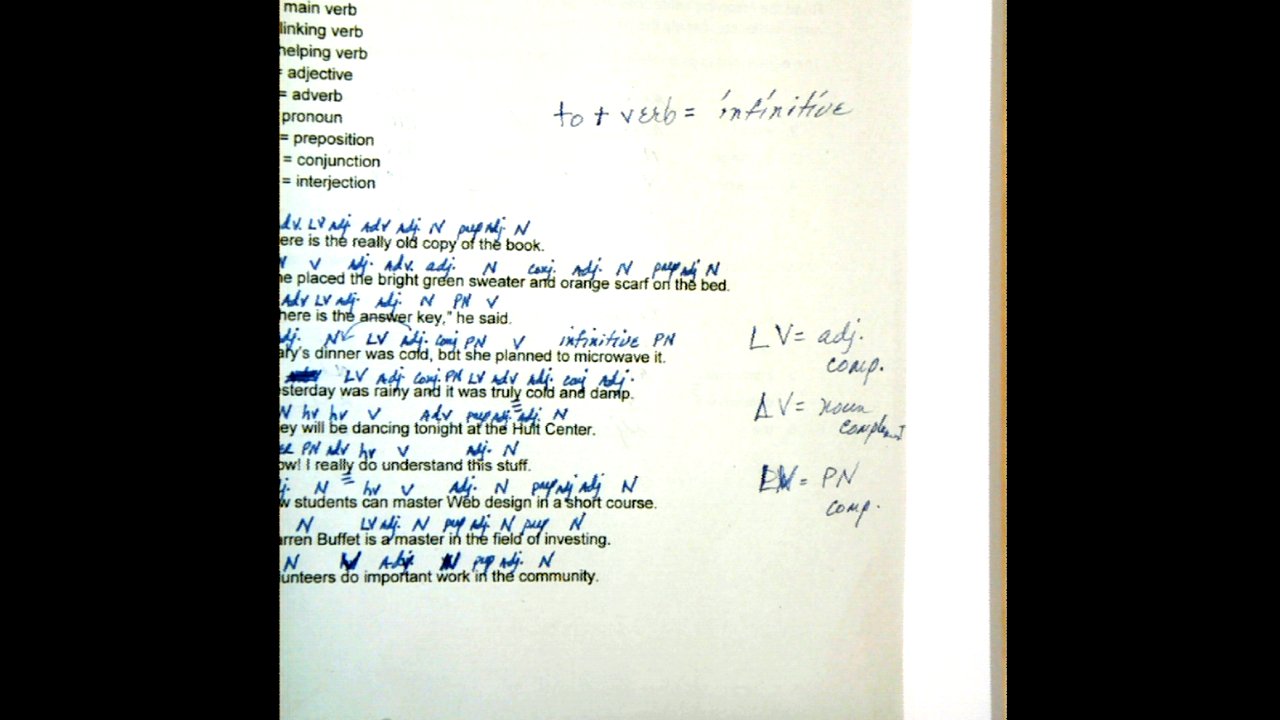 main verb
linking verb
helping verb
= adjective
= adverb
to + verb = infinitive
pronoun
= preposition
= conjunction
= interjection
adv. LV adj. Adv Adj. N prep Adj. N
ere is the really old copy of the book.
N V Adj. Adv. adj. N conj. Adj. N prep adj N
he placed the bright green sweater and orange scarf on the bed.
Adv LV adj. Adj. N PN V
here is the answer key," he said.
adj. N LV Adj. conj PN V infinitive PN
ary's dinner was cold, but she planned to microwave it.
LV = adj.
comp.
LV Adj conj. PN LV Adv Adj. conj Adj.
sterday was rainy and it was truly cold and damp.
LV = noun
complement
N hv hv V Adv prep Adj. adj. N
ey will be dancing tonight at the Hult Center.
PN adv hv V adj. N
ow! I really do understand this stuff.
LV = PN
comp.
j. N hv V Adj. N prep adj Adj N
w students can master Web design in a short course.
N LV adj. N prep adj. N prep N
rren Buffet is a master in the field of investing.
N V Adj. N prep Adj. N
unteers do important work in the community.